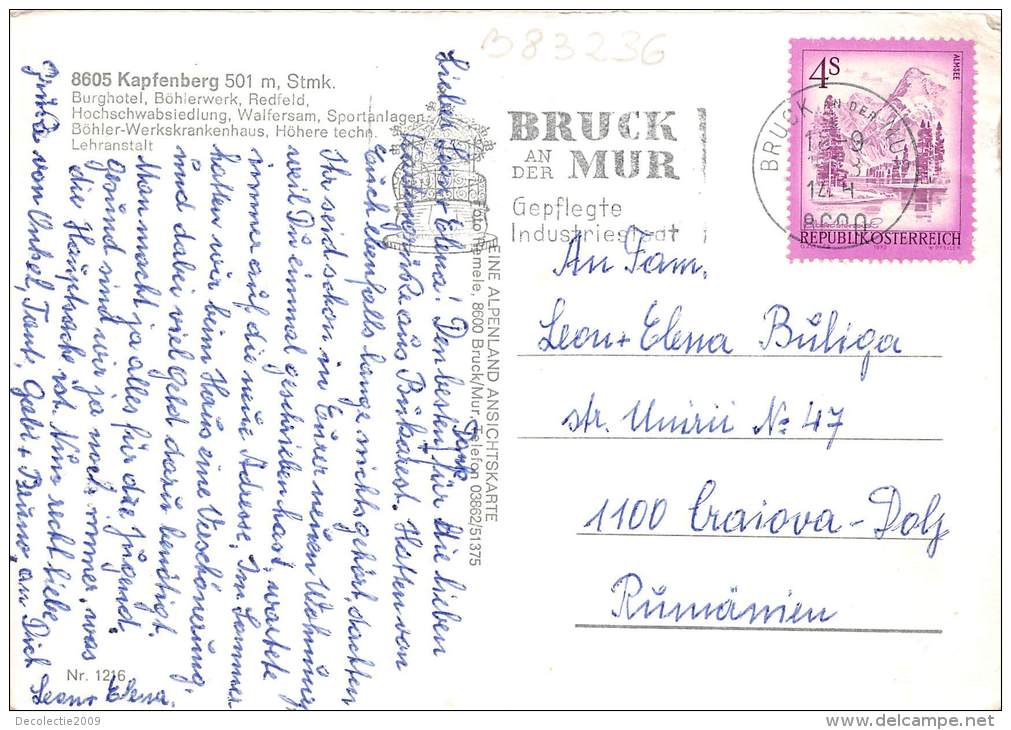 B83236
8605 Kapfenberg 501 m, Stmk.
Burghotel, Böhlerwerk, Redfeld,
Hochschwabsiedlung, Walfersam, Sportanlagen
Böhler-Werkskrankenhaus, Höhere techn.
Lehranstalt
Lieber Leon + Elena! Den besten Dank für die lieben
aus Bukarest. Hetten von
Euch ebenfalls lange nichts gehört, dachten
Ihr seid schon in Eurer neuen Wohnung
weil Du einmal geschrieben hast, wartete
immer auf die neue Adresse. Im Sommer
haben wir beim Haus eine Verschönerung,
und dabei viel Geld dazu benötigt.
Man macht ja alles für die Jugend.
Gesund sind wir ja noch immer, was
die Hauptsache ist. Nun recht liebe
Grüße von Onkel, Tante, Gabi + Bruno, an Dich
Leon + Elena.
Nr. 1216
EINE ALPENLAND ANSICHTSKARTE
Foto Riemele, 8600 Bruck/Mur, Telefon 03862/51375
BRUCK
AN DER MUR
Gepflegte
Industriestadt
BRUCK AN DER MUR
8600
4S
ALMSEE
REPUBLIK ÖSTERREICH
An Fam.
Leon + Elena Buliga
str. Unirii No 47
1100 Craiova - Dolj
Rumänien
Decolectie2009
delcampe.net